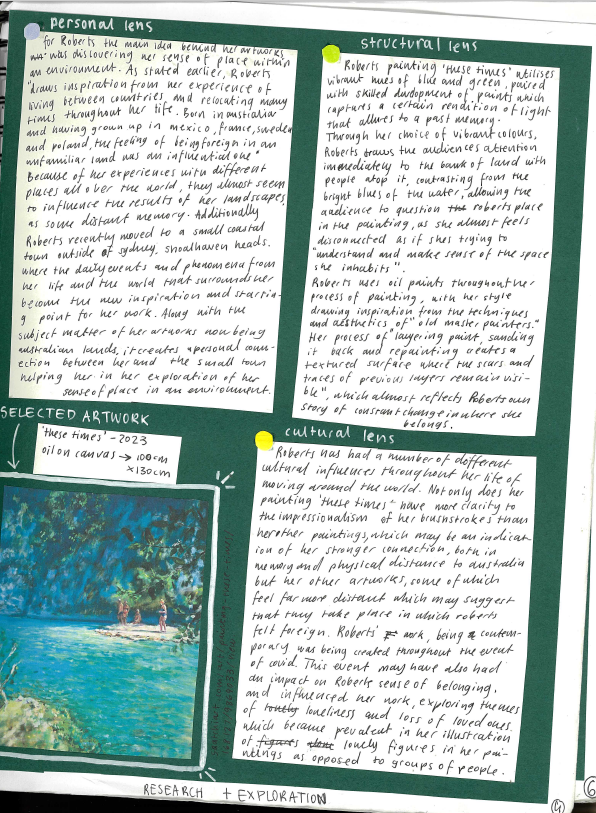 personal lens
for Roberts the main idea behind her artworks
was discovering her sense of place within
an environment. As stated earlier, Roberts
"draws inspiration from her experience of
living between countries and relocating many
times throughout her life. Born in australia
and having grown up in mexico, france, sweden
and poland, the feeling of being foreign in an
unfamiliar land was an influential one"
Because of her experiences with different
places all over the world, they almost seem
to influence the results of her landscapes,
as some distant memory. Additionally
Roberts recently moved to a small coastal
town outside of sydney, shoalhaven heads.
where the daily events and phenomena from
her life and the world that surrounds her
become the new inspiration and startin-
g point for her work. Along with the
subject matter of her artworks now being
australian lands, it creates a personal conn-
ection between her and the small town
helping her in her exploration of her
sense of place in an environment.
structural lens
Roberts painting 'these times' utilises
vibrant hues of blue and green, paired
with skilled devlopment of paints which
captures a certain rendition of light
that allures to a past memory.
Through her choice of vibrant colours,
Roberts draws the audiences attention
immediately to the bank of land with
people atop it, contrasting from the
bright blues of the water, allowing the
audience to question the roberts place
in the painting, as she almost feels
disconnected as if shes trying to
"understand and make sense of the space
she inhabits".
Roberts uses oil paints throughout her
process of painting, with her style
drawing inspiration from the techniques
and aesthetics of "old master painters."
Her process of "layering paint, sanding
it back and repainting creates a
textured surface where the scars and
traces of previous layers remain visi-
ble", which almost reflects Roberts own
story of constant change in where she
belongs.
SELECTED ARTWORK
'these times' - 2023
oil on canvas → 100cm
x 130cm
cultural lens
Roberts has had a number of different
cultural influences throughout her life of
moving around the world. Not only does her
painting 'these times' have more clarity to
the impressionalism of her brushstrokes than
her other paintings, which may be an indicat-
ion of her stronger connection, both in
memory and physical distance to australia
but her other artworks, some of which
feel far more distant which may suggest
that they take place in which roberts
felt foreign. Roberts' work, being a contem-
porary was being created throughout the event
of covid. This event may have also had
an impact on Roberts sense of belonging,
and influenced her work, exploring themes
of lonely loneliness and loss of loved ones.
which became prevalent in her illustration
of figures alone lonely figures in her pai-
ntings as opposed to groups of people.
RESEARCH + EXPLORATION